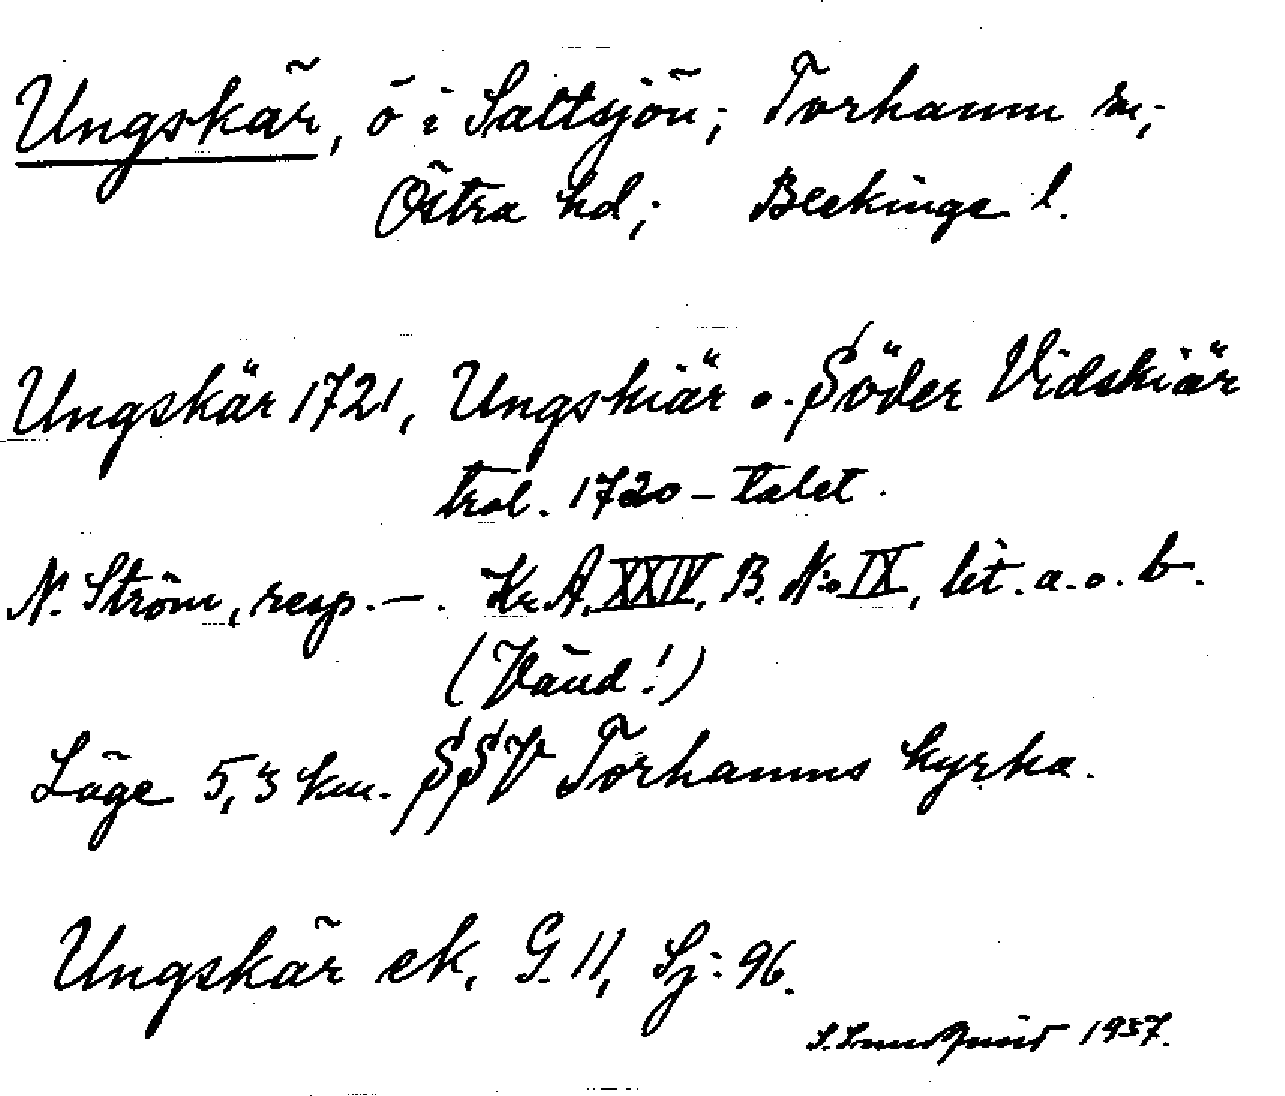 Ungskär, ö i Saltsjön; Torhamn sn;
Östra hd; Blekinge l.
Ungskär 1721, Ungskiär o. Söder Vidskiär
trol. 1720-talet.
N. Ström, resp. —. Kr. A. XXIV. B. N:o IX, lit. a. o. b.
(Vänd!)
Läge 5,3 km. SSV Torhamns kyrka.
Ungskär ek. G. 11, Sj: 96.
1937.